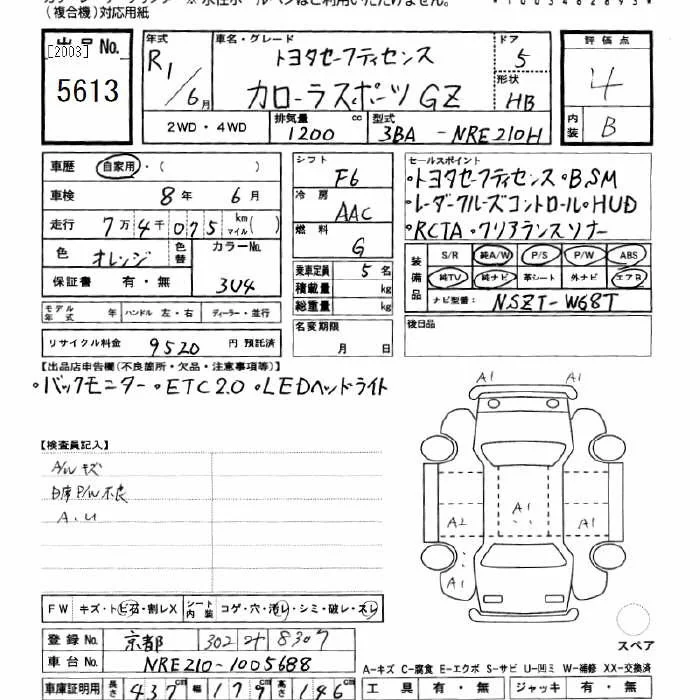 (複合機)対応用紙
出品No.
[2003]
5613
年式 R1/6月
車名・グレード トヨタセーフティセンス
カローラスポーツ GZ
ドア 5
形状 HB
評価点 4
内装 B
2WD・4WD
排気量 1200 cc
型式 3BA - NRE210H
車歴 自家用・( )
車検 8年 6月
走行 7万4千075 km マイル ( )
色 オレンジ 色替 カラーNo. 3U4
保証書 有・無
モデル年式 年 ハンドル 左・右 ディーラー・並行
リサイクル料金 9520 円 預託済
シフト F6
冷房 AAC
燃料 G
乗車定員 5名
積載量 kg
総重量 kg
名変期限
月 日
セールスポイント
・トヨタセーフティセンス・BSM
・レーダークルーズコントロール・HUD
・RCTA・クリアランスソナー
装備品
S/R 純A/W P/S P/W ABS
純TV 純ナビ 革シート 外ナビ エアB
ナビ型番: NSZT-W68T
後日品
【出品店申告欄(不良箇所・欠品・注意事項等)】
・バックモニター・ETC2.0・LEDヘッドライト
【検査員記入】
A/W キズ
P/W 不良
A.U
A1 A1
A2 A1 A1
A1
FW キズ・トビ石・割レX シート内装 コゲ・穴・汚レ・シミ・破レ・スレ
登録No. 京都 302 8307
車台No. NRE210-1005688
スペア
A-キズ C-腐食 E-エクボ S-サビ U-凹ミ W-補修 XX-交換済
車庫証明用 長さ 437cm 幅 179cm 高さ 146cm
工具 有・無 ジャッキ 有・無